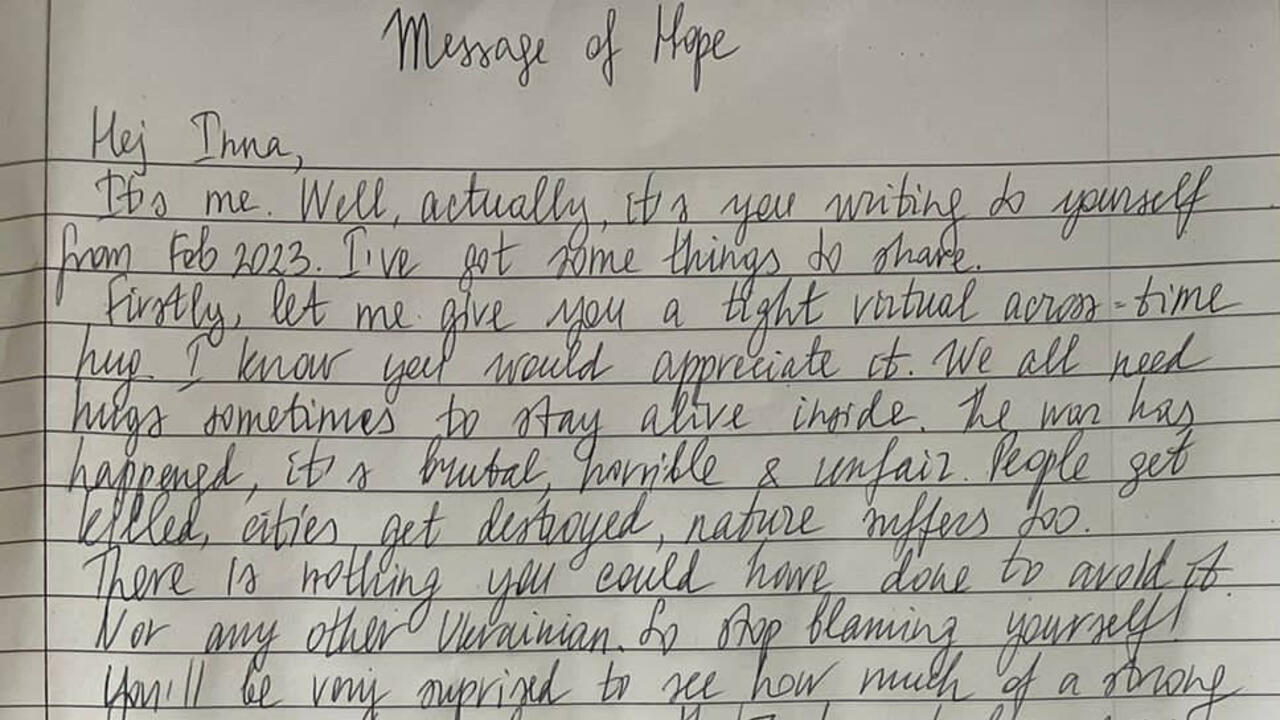 Message of Hope
Hej Inna,
It's me. Well, actually, it's you writing to yourself
from Feb 2023. I've got some things to share.
Firstly, let me give you a tight virtual across-time
hug. I know you would appreciate it. We all need
hugs sometimes to stay alive inside. The war has
happened, it's brutal, horrible & unfair. People get
killed, cities get destroyed, nature suffers too.
There is nothing you could have done to avoid it.
Nor any other Ukrainian. So stop blaming yourself!
You'll be very suprized to see how much of a strong